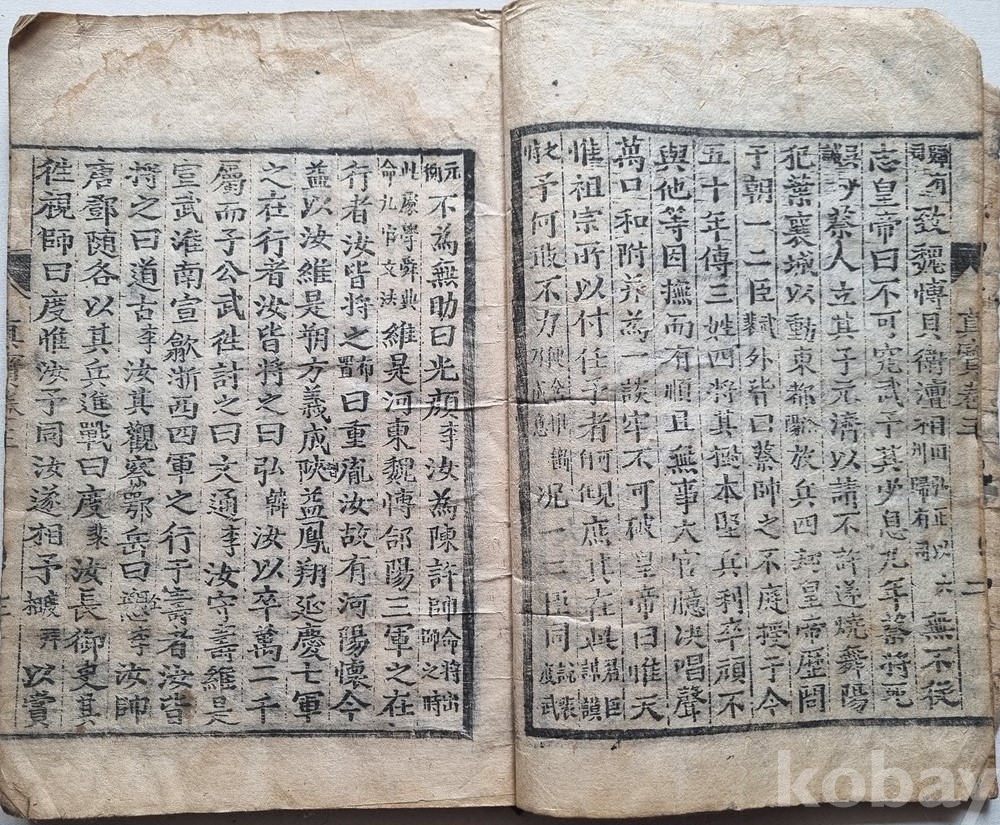 致魏慱貝衛澶相田弘正以六州歸有司無不從
志皇帝曰不可究武予其少息九年蔡將死
吳少誠蔡人立其子元濟以請不許遂燒舞陽
犯葉襄城以動東都放兵四劫皇帝歷問
于朝一二臣外皆曰蔡帥之不庭授于今
五十年傳三姓四將其樹本堅兵利卒頑不
與他等因撫而有順且無事大官臆决唱聲
萬口和附并為一談牢不可破皇帝曰惟天
惟祖宗所以付任予者庶其在此
予何敢不力况一二臣同
不為無助曰光顔李汝為陳許帥命將出師之時
此處學舜典命九官文法維是河東魏愽郃陽三軍之在
行者汝皆將之曰重胤汝故有河陽懷今
益以汝維是朔方義成陝益鳳翔延慶七軍
之在行者汝皆將之曰弘韓汝以卒萬二千
屬而子公武往討之曰文通李汝守壽維是
宣武淮南宣歙浙西四軍之行于壽者汝皆
將之曰道古李汝其觀察鄂岳曰愬李汝帥
唐鄧随各以其兵進戰曰度裴汝長御史其
往視師曰度惟汝予同汝遂相予以賞
真寶卷五
kobay